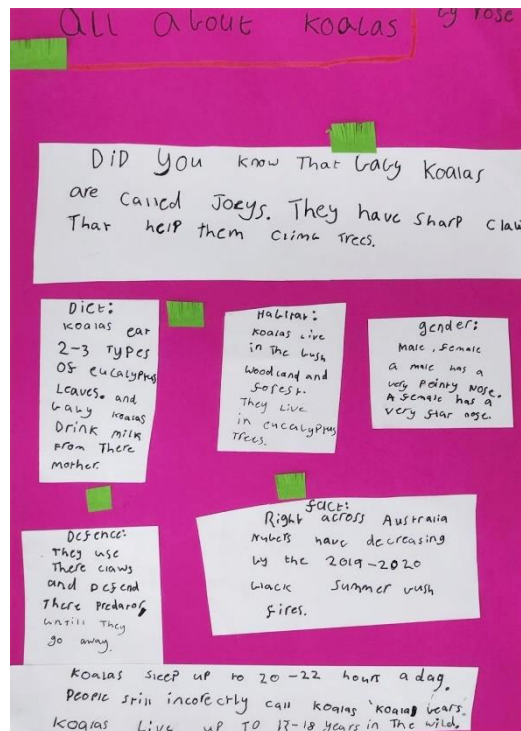 All about Koalas
by rose
DiD you know That baby Koalas
are called Joeys. They have sharp claw
That help them climb Trees.
Diet:
Koalas eat
2-3 Types
of eucalyptus
Leaves. and
baby koalas
Drink milk
From There
mother.
Habitat:
Koalas Live
in The bush
woodland and
forest.
They Live
in eucalyptus
Trees.
gender:
Male, female
a male has a
very pointy Nose.
A female has a
very flat nose.
Defence:
They use
There claws
and Defend
There predator,
untill They
go away.
fact:
Right across Australia
Nubers have decreasing
by the 2019-2020
black Summer bush
fires.
Koalas sleep up to 20-22 hours a day.
People still incorectly call koalas 'koala bears.
Koalas Live up To 17-18 years in The wild.